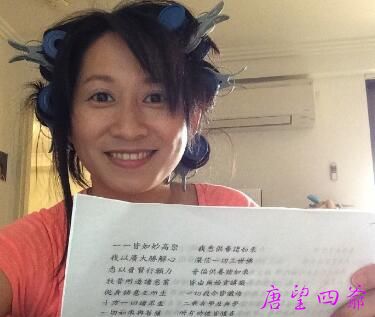 一一皆如妙高聚 我悉供養諸如來
我以廣大勝解心 深信一切三世佛
悉以普賢行願力 普徧供養諸如來
我昔所造諸惡業 皆由無始貪瞋癡
從身語意之所生 一切我今皆懺悔
十方一切諸眾生 二乘有學及無學
一切如來與菩薩 所有功德皆隨喜
唐望四爺